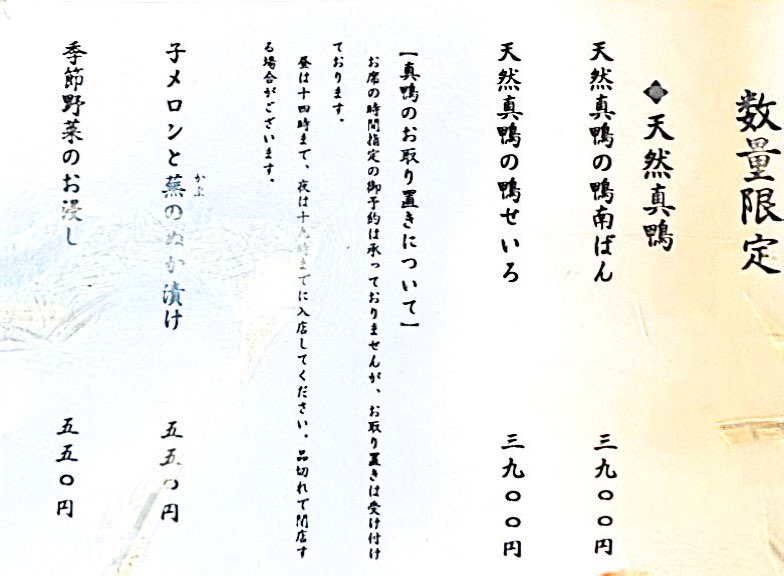 数量限定
◆天然真鴨
天然真鴨の鴨南ばん 三九〇〇円
天然真鴨の鴨せいろ 三九〇〇円
【真鴨のお取り置きについて】
お席の時間指定の御予約は承っておりませんが、お取り置きは受け付け
ております。
昼は十四時まで、夜は十九時までに入店してください。品切れで閉店す
る場合がございます。
子メロンと蕪のぬか漬け 五五〇円
かぶ
季節野菜のお浸し 五五〇円